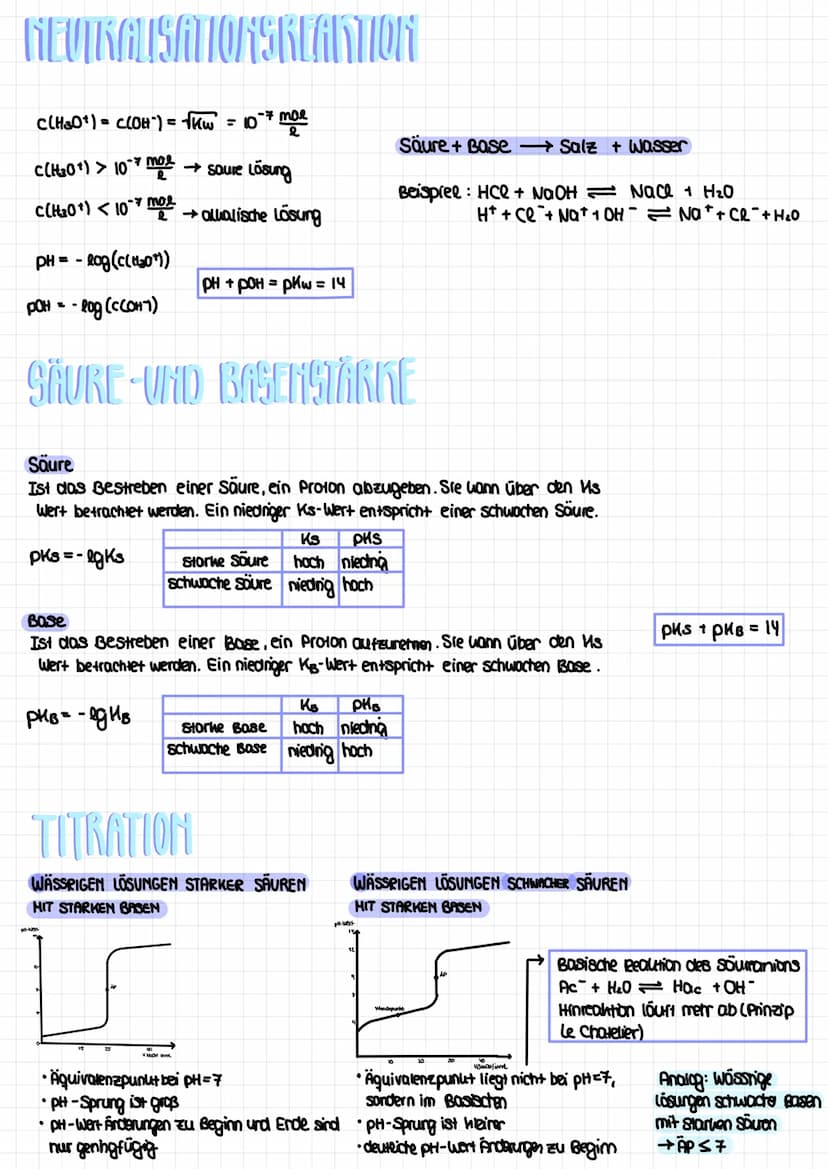 NEUTRALISATIONSREAKTION
c(H₃O⁺) = c(OH⁻) = √Kw = 10⁻⁷ mol/l
c(H₃O⁺) > 10⁻⁷ mol/l → saure Lösung
c(H₃O⁺) < 10⁻⁷ mol/l → alkalische Lösung
pH = - log(c(H₃O⁺))
pH + pOH = pKw = 14
pOH = - log(c(OH⁻))
Säure + Base → Salz + Wasser
Beispiel : HCl + NaOH ⇌ NaCl + H₂O
H⁺ + Cl⁻ + Na⁺ + OH⁻ ⇌ Na⁺ + Cl⁻ + H₂O
SÄURE-UND BASENSTÄRKE
Säure
Ist das Bestreben einer Säure, ein Proton abzugeben. Sie kann über den Ks
Wert betrachtet werden. Ein niedriger Ks-Wert entspricht einer schwachen Säure.
pKs = - lgKs
Ks pKs
starke Säure hoch niedrig
schwache Säure niedrig hoch
Base
Ist das Bestreben einer Base, ein Proton aufzunehmen. Sie kann über den Ks
Wert betrachtet werden. Ein niedriger KB-Wert entspricht einer schwachen Base.
pKs + pKB = 14
pKB = - lgKB
KB pKB
starke Base hoch niedrig
schwache Base niedrig hoch
TITRATION
WÄSSRIGEN LÖSUNGEN STARKER SÄUREN
MIT STARKEN BASEN
WÄSSRIGEN LÖSUNGEN SCHWACHER SÄUREN
MIT STARKEN BASEN
pH-Wert
ÄP
pH-Wert
ÄP
Wendepunkt
Basische Reaktion des Säureanions
Ac⁻ + H₂O ⇌ Hac + OH⁻
Hinreaktion läuft mehr ab (Prinzip
Le Chatelier)
• Äquivalenzpunkt bei pH=7
• pH-Sprung ist groß
• pH-Wert Änderungen zu Beginn und Ende sind
nur geringfügig
• Äquivalenzpunkt liegt nicht bei pH=7,
sondern im Basischen
• pH-Sprung ist kleiner
• deutliche pH-Wert Änderungen zu Beginn
Analog: Wässrige
Lösungen schwache Basen
mit starken Säuren
→ ÄP ≤ 7